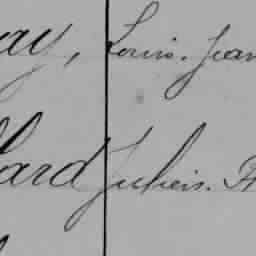 ay, Louis. Jean
lard Julien. A